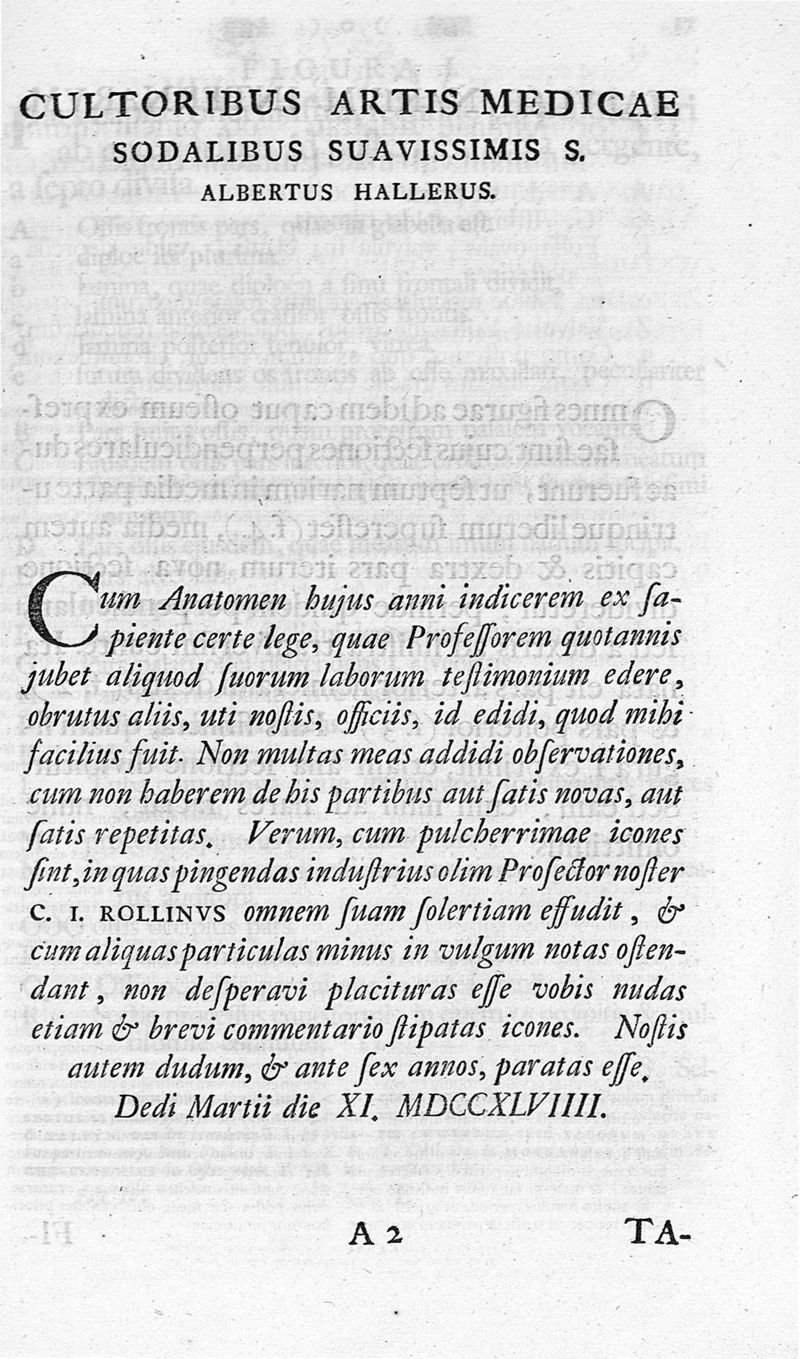 CULTORIBUS ARTIS MEDICAE
SODALIBUS SUAVISSIMIS S.
ALBERTUS HALLERUS.
Cum Anatomen hujus anni indicerem ex ſa-
piente certe lege, quae Profeſſorem quotannis
jubet aliquod ſuorum laborum teſtimonium edere,
obrutus aliis, uti noſtis, officiis, id edidi, quod mihi
facilius fuit. Non multas meas addidi obſervationes,
cum non haberem de his partibus aut ſatis novas, aut
ſatis repetitas. Verum, cum pulcherrimae icones
ſint, in quas pingendas induſtrius olim Proſector noſter
C. I. ROLLINVS omnem ſuam ſolertiam effudit, &
cum aliquas particulas minus in vulgum notas oſten-
dant, non deſperavi placituras eſſe vobis nudas
etiam & brevi commentario ſtipatas icones. Noſtis
autem dudum, & ante ſex annos, paratas eſſe.
Dedi Martii die XI. MDCCXLVIIII.
A 2 TA-